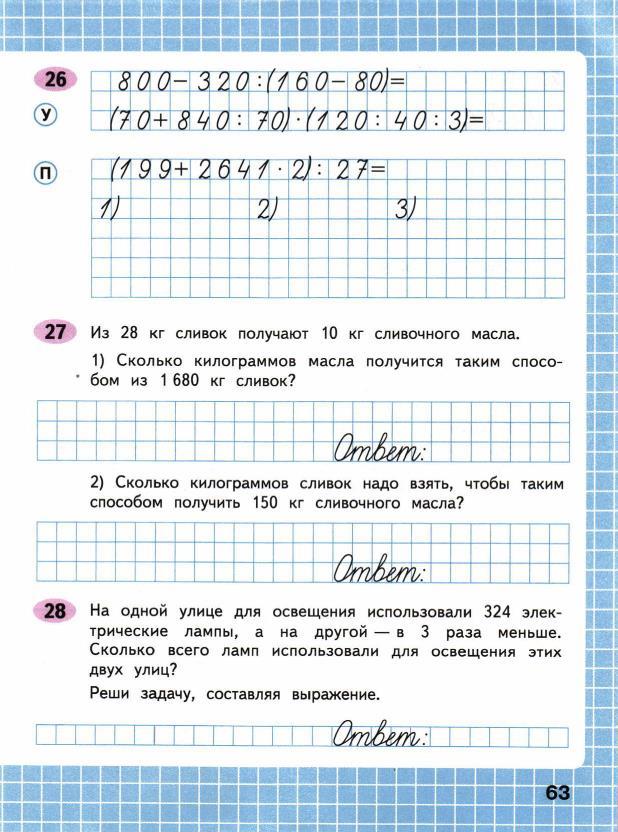 26
800 - 320 : (160 - 80) =
У
(70 + 840 : 70) · (120 : 40 : 3) =
П
(199 + 2641 · 2) : 27 =
1) 2) 3)
27 Из 28 кг сливок получают 10 кг сливочного масла.
1) Сколько килограммов масла получится таким спосо-
бом из 1 680 кг сливок?
Ответ:
2) Сколько килограммов сливок надо взять, чтобы таким
способом получить 150 кг сливочного масла?
Ответ:
28 На одной улице для освещения использовали 324 элек-
трические лампы, а на другой — в 3 раза меньше.
Сколько всего ламп использовали для освещения этих
двух улиц?
Реши задачу, составляя выражение.
Ответ:
63